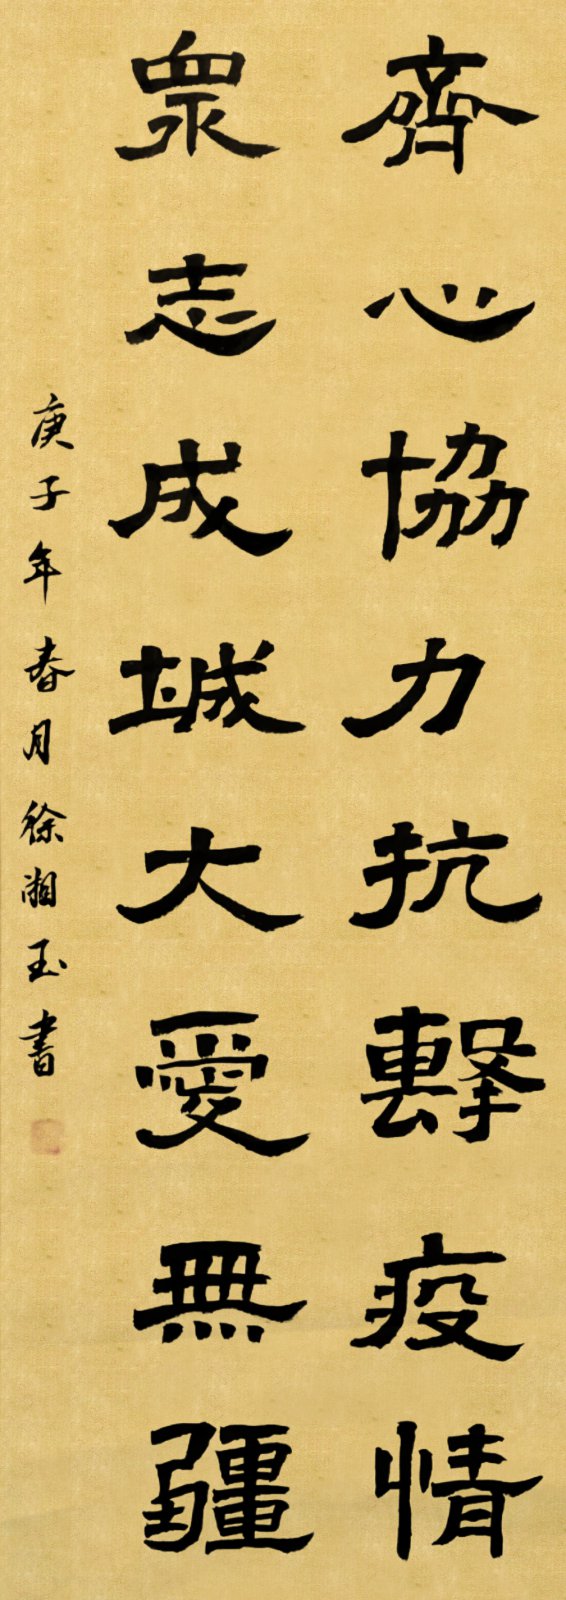 齊心協力抗擊疫情
眾志成城大愛無疆
庚子年春月徐湘玉書